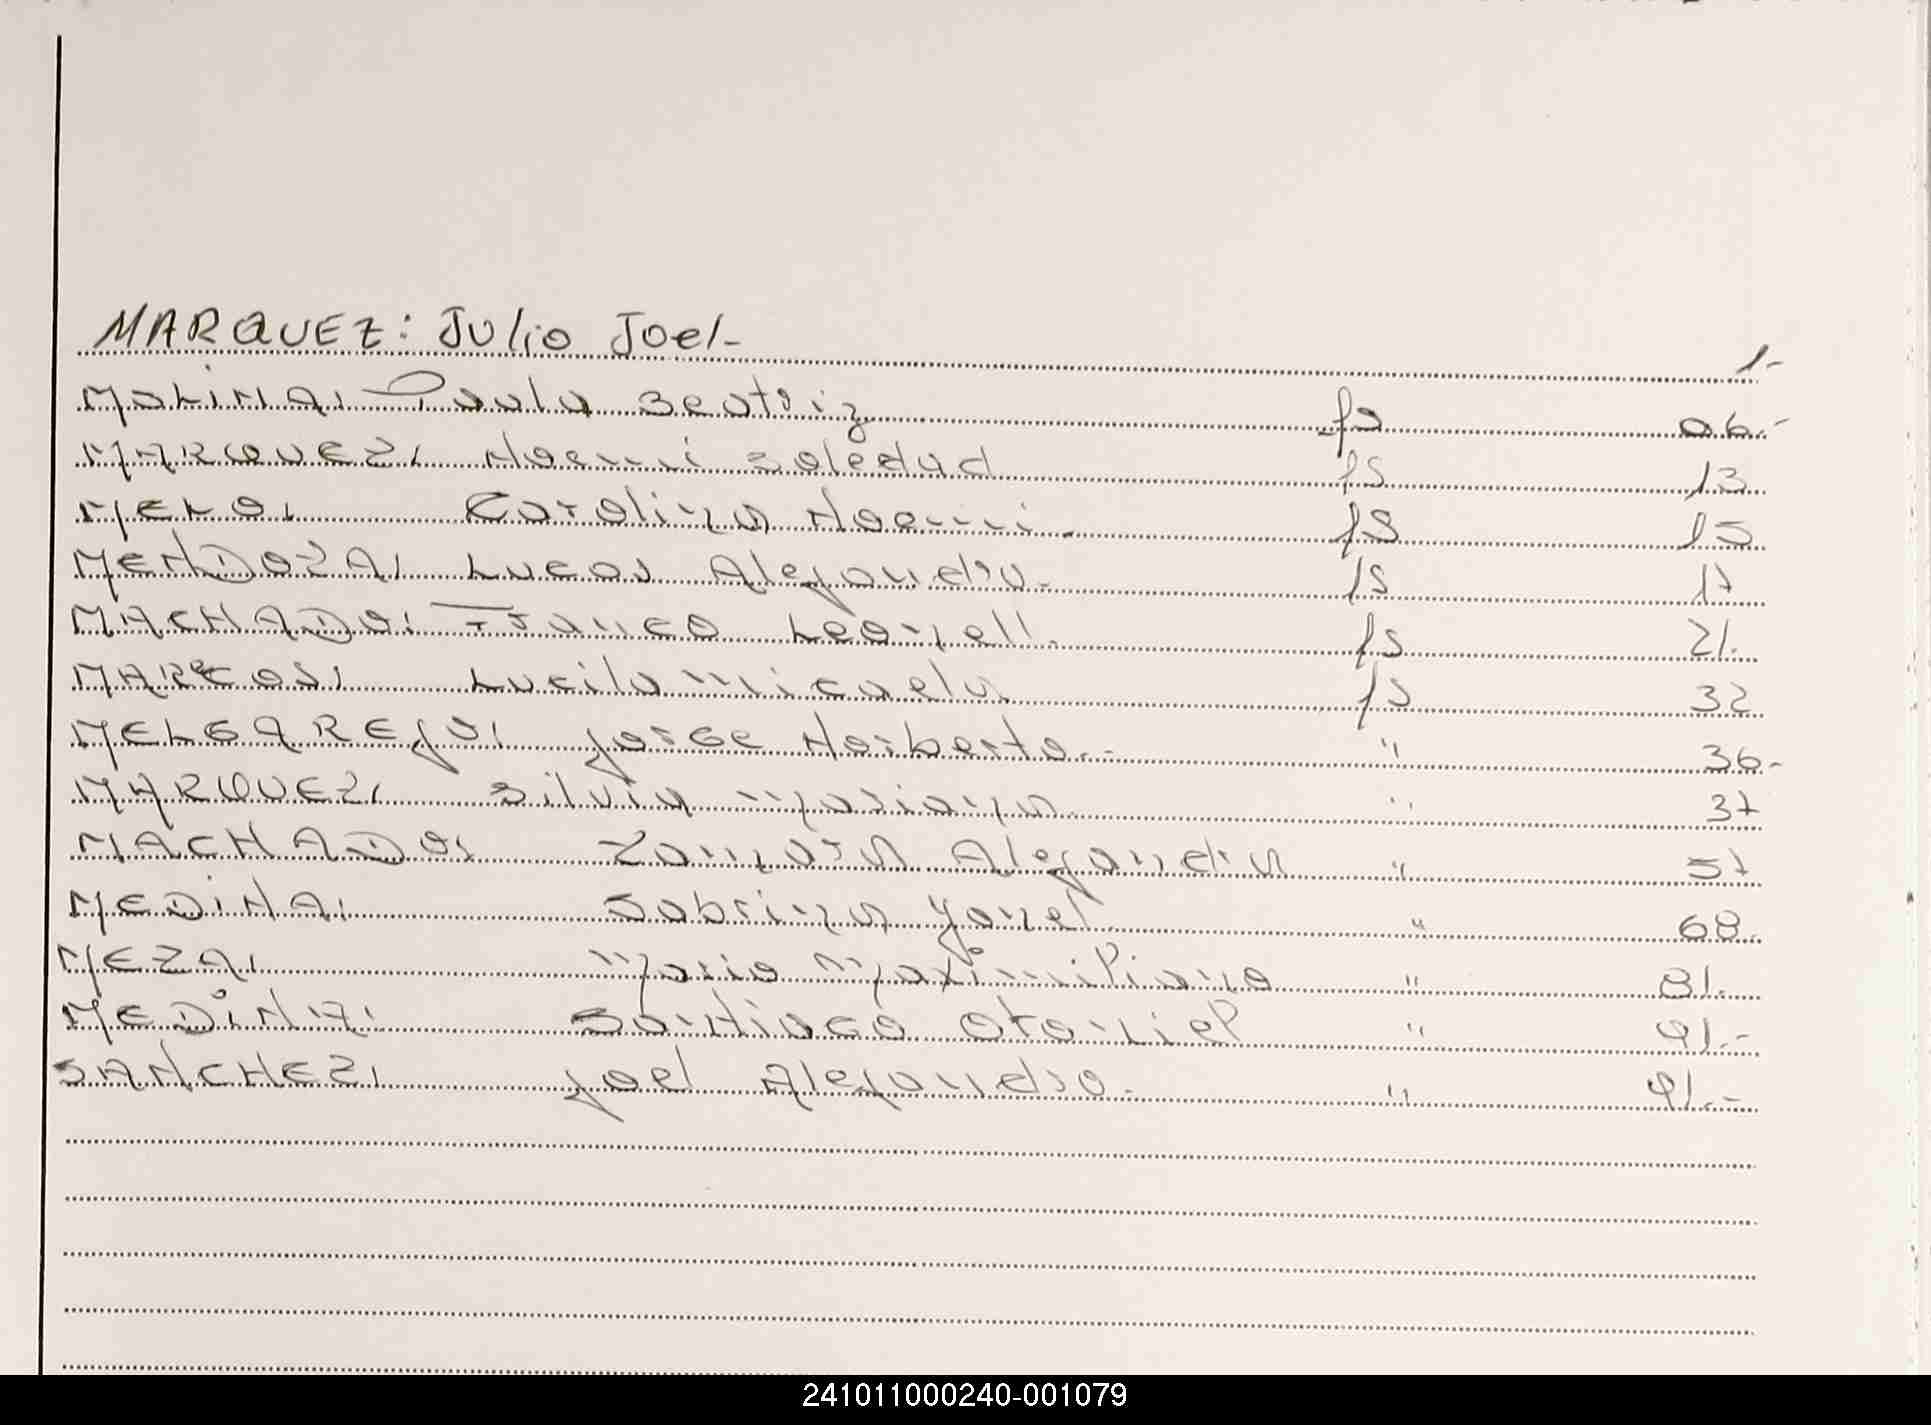 MARQUEZ: Julio Joel- 1-
MOLINA: Paula Beatriz fs 06.-
MARQUEZ: Noemi Soledad fs 13
MELO: Carolina Noemi.- fs 15
MENDOZA: Lucas Alejandro.- fs 17
MACHADO: Franco Leonell. fs 21.
MARCOS: Lucila Micaela fs 32
MELGAREJO: Jorge Norberto.- " 36.-
MARQUEZ: Silvia Mariana " 37
MACHADO: Zamara Alejandra " 57
MEDINA: Sabrina Yanel " 68.
MEZA: Mario Maximiliano " 81.-
MEDINA: Santiago Otoniel " 91.-
SANCHEZ: Joel Alejandro.- " 91.-
241011000240-001079